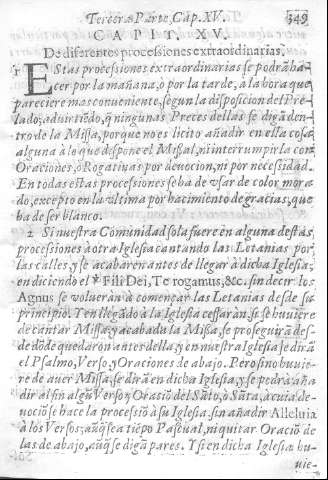 Tercera Parte, Cap. XV. 349
CAPIT. XV.
De diferentes processiones extraordinarias.
1 Estas processiones extraordinarias se podrã ha-
cer por la mañana, ò por la tarde, a la hora que
pareciere mas conveniente, segun la disposicion del Pre-
lado, advirtiẽdo, q̃ ningunas Preces dellas se digã den-
tro de la Missa, porque no es licito añadir en ella cosa
alguna à lo que dispone el Missal, ni interrumpirla con
Oraciones, ò Rogativas por devocion, ni por necessidad.
En todas estas processiones se ha de vsar de color mora-
do, excepto en la vltima por hacimiento de gracias, que
ha de ser blanco.
2 Si nuestra Comunidad sola fuere en alguna destas
processiones à otra Iglesia cantando las Letanias por
las calles, y se acabaren antes de llegar à dicha Iglesia;
en diciendo el ℣ Fili Dei, Te rogamus, &c. sin decir los
Agnus se volveràn à començar las Letanias desde su
principio. Y en llegãdo à la Iglesia cessaràn: si se huviere
de cantar Missa: y acabada la Missa, se proseguirà des-
de dõde quedaron antes della, y en nuestra Iglesia se dirà
el Psalmo, Verso, y Oraciones de abajo. Pero si no huvie-
re de aver Missa, se dirà en dicha Iglesia, y se podrà aña
dir al fin algũ Verso y Oraciõ del Sãto, ò Sãta, à cuia de-
vociõ se hace la processiõ à su Iglesia, sin añadir Alleluia
à los Versos; aũq̃ sea tiẽpo Pascual, ni quitar Oraciõ de
las de abajo, aũq̃ se digã pares. Y si en dicha Iglesia hu-
vie-